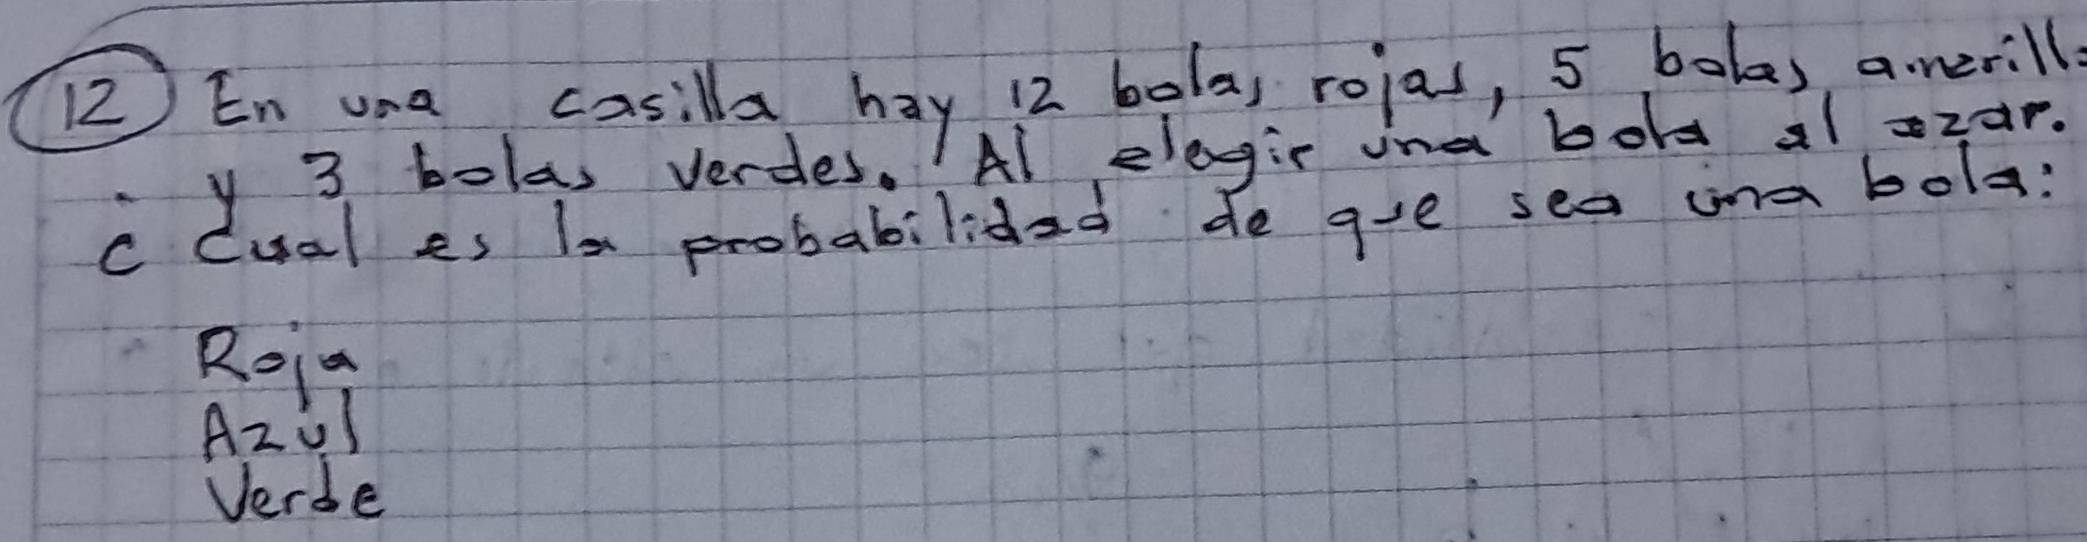 12 En una casilla hay 12 bolas rojas, 5 bolas amarill
y 3 bolas verdes. Al elegir una bola al azar.
¿ Cual es la probabilidad de que sea una bola:
Roja
Azul
Verde